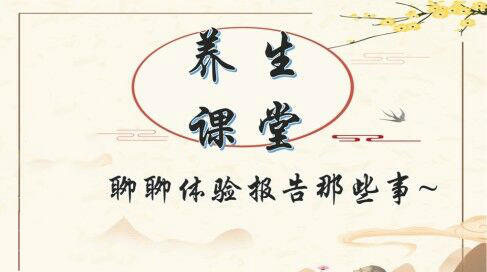 养生
课堂
聊聊体验报告那些事~